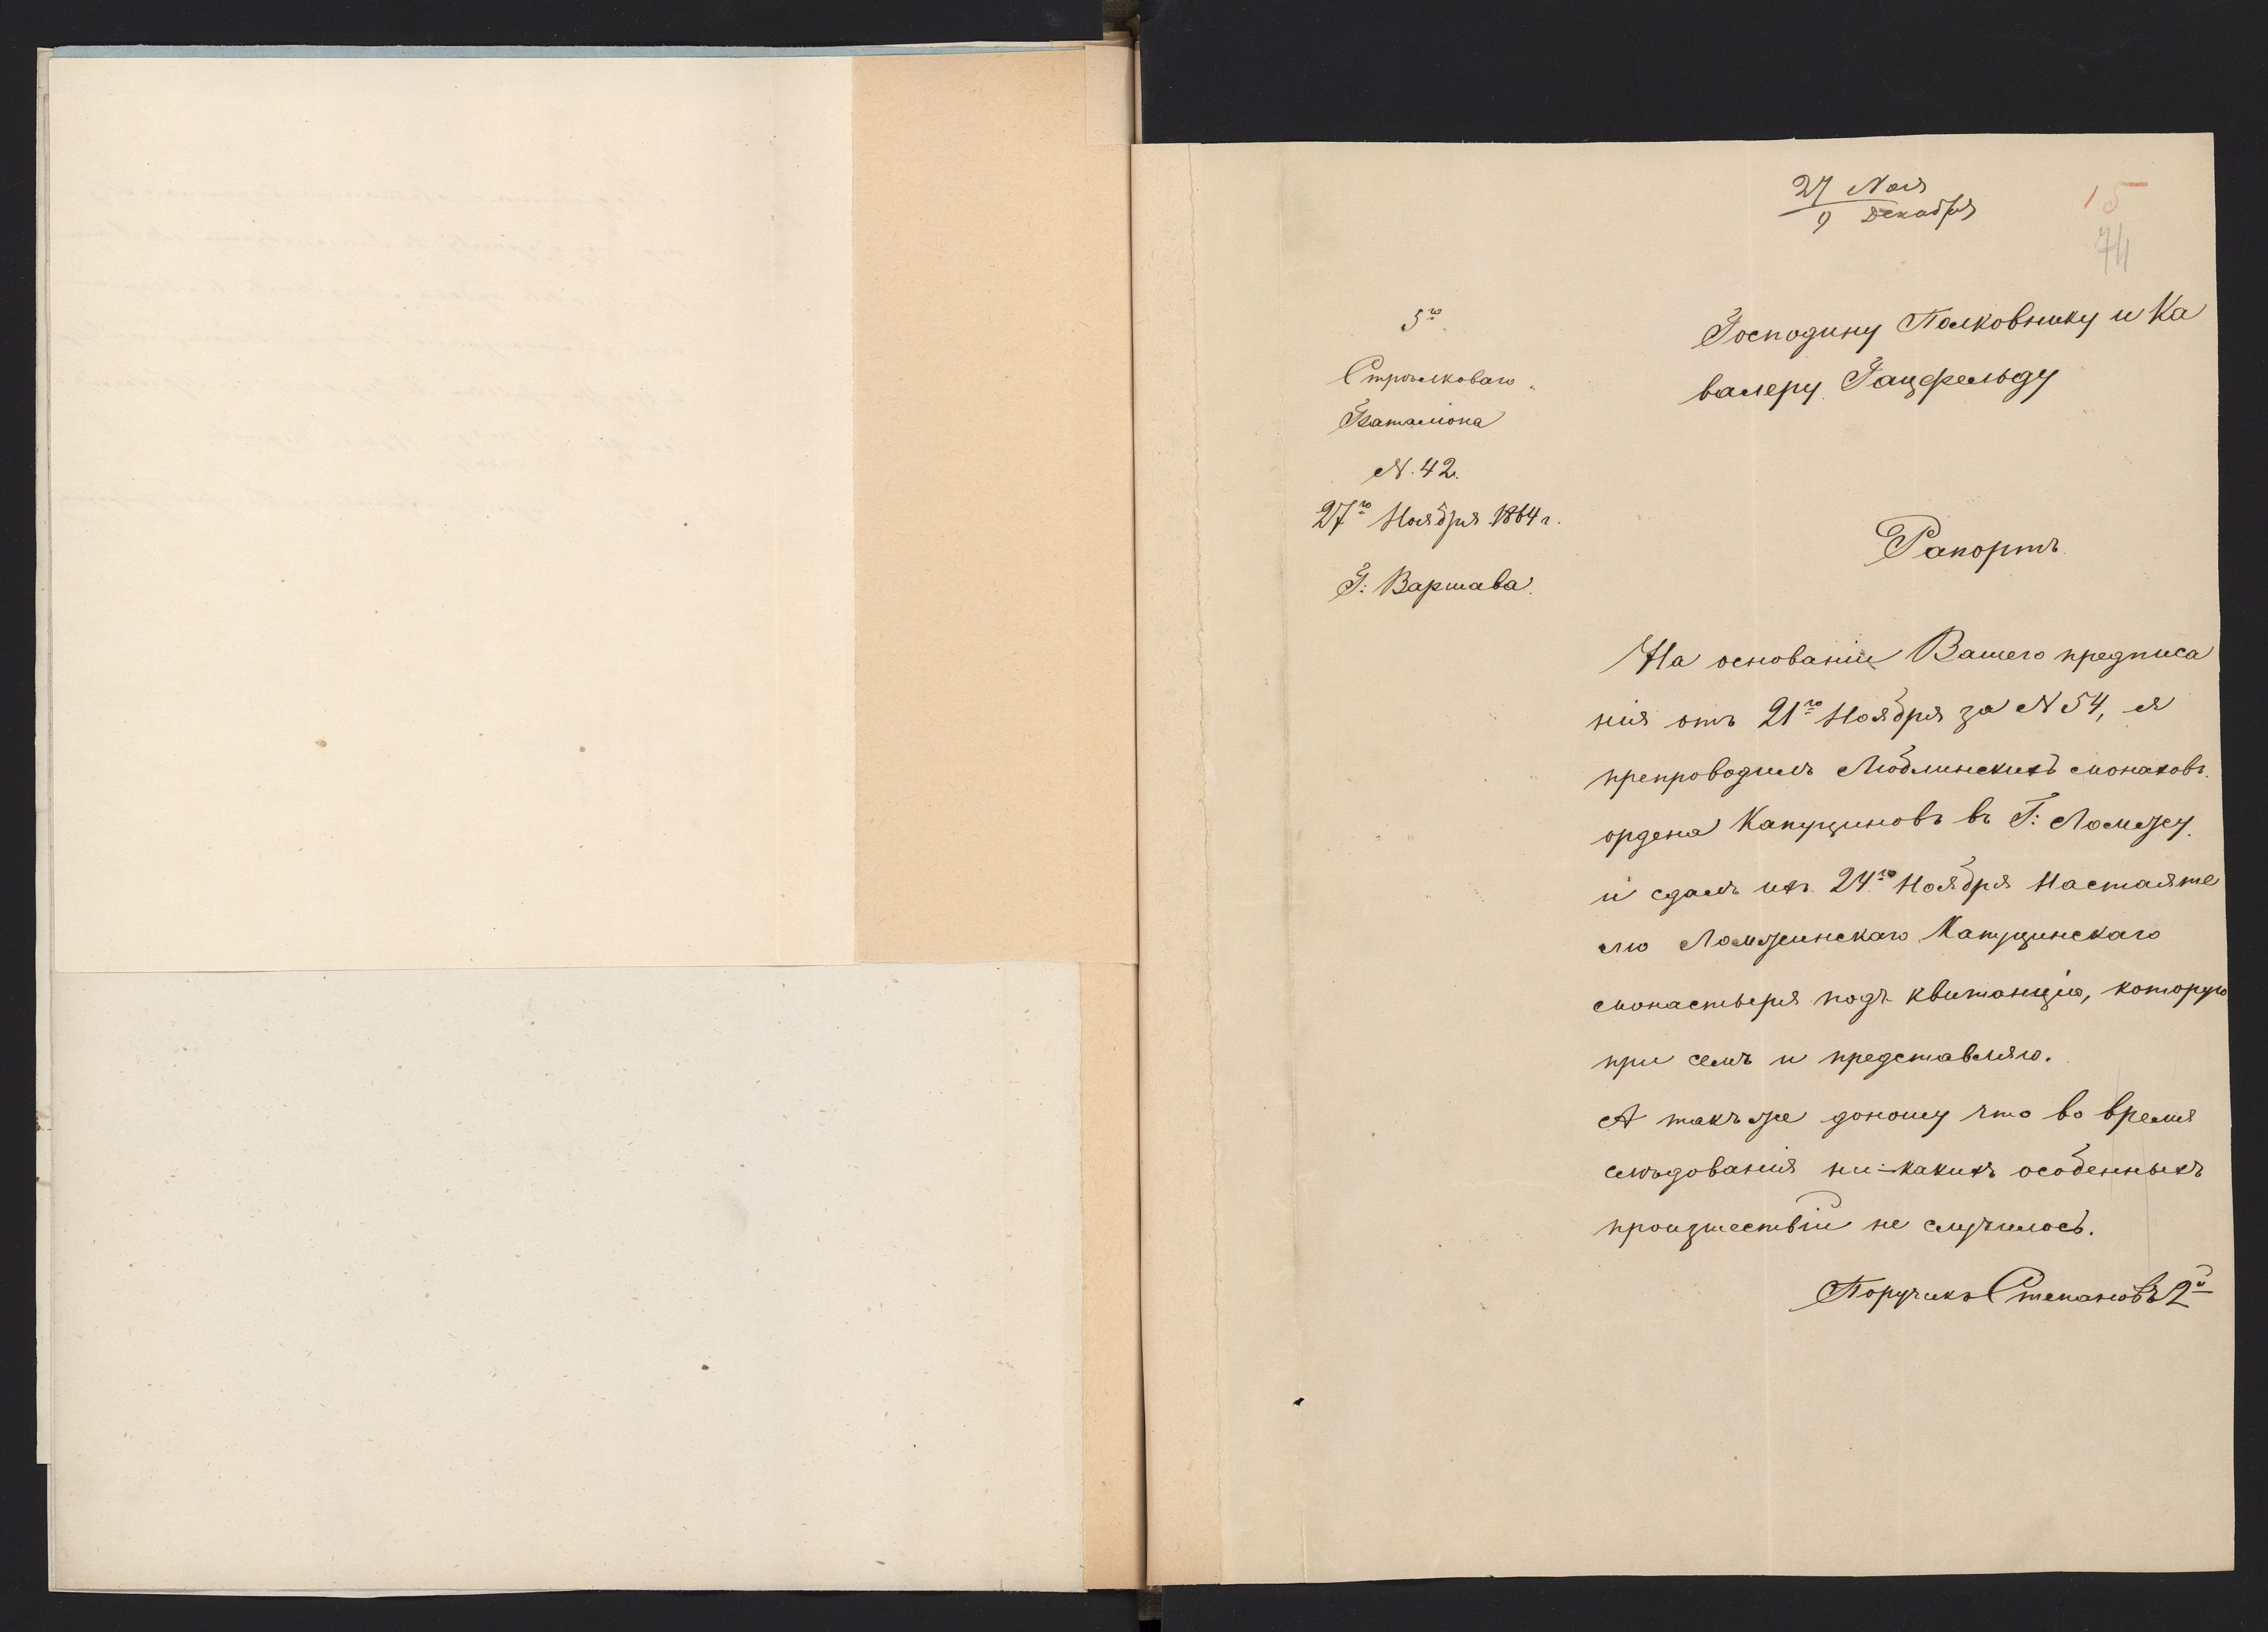 27 Ноя
9 Декабря
15
74
5го
Стрѣлковаго
Баталіона
N. 42.
27го Ноября 1864 г.
Г: Варшава.
Господину Полковнику и Ка
валеру Гацфельду
Рапортъ
На основаніи Вашего предписа
нія отъ 21го Ноября за N 54, я
препроводилъ Люблинскихъ монаховъ
ордена Капуциновъ въ Г: Ломжу
и сдалъ ихъ 24го Ноября Настояте
лю Ломжинскаго Капуцинскаго
монастыря подъ квитанцію, которую
при семъ и представляю.
А такъ же доношу что во время
слѣдованія ни-какихъ особенныхъ
произшествій не случилось.
Поручикъ Степановъ 2й